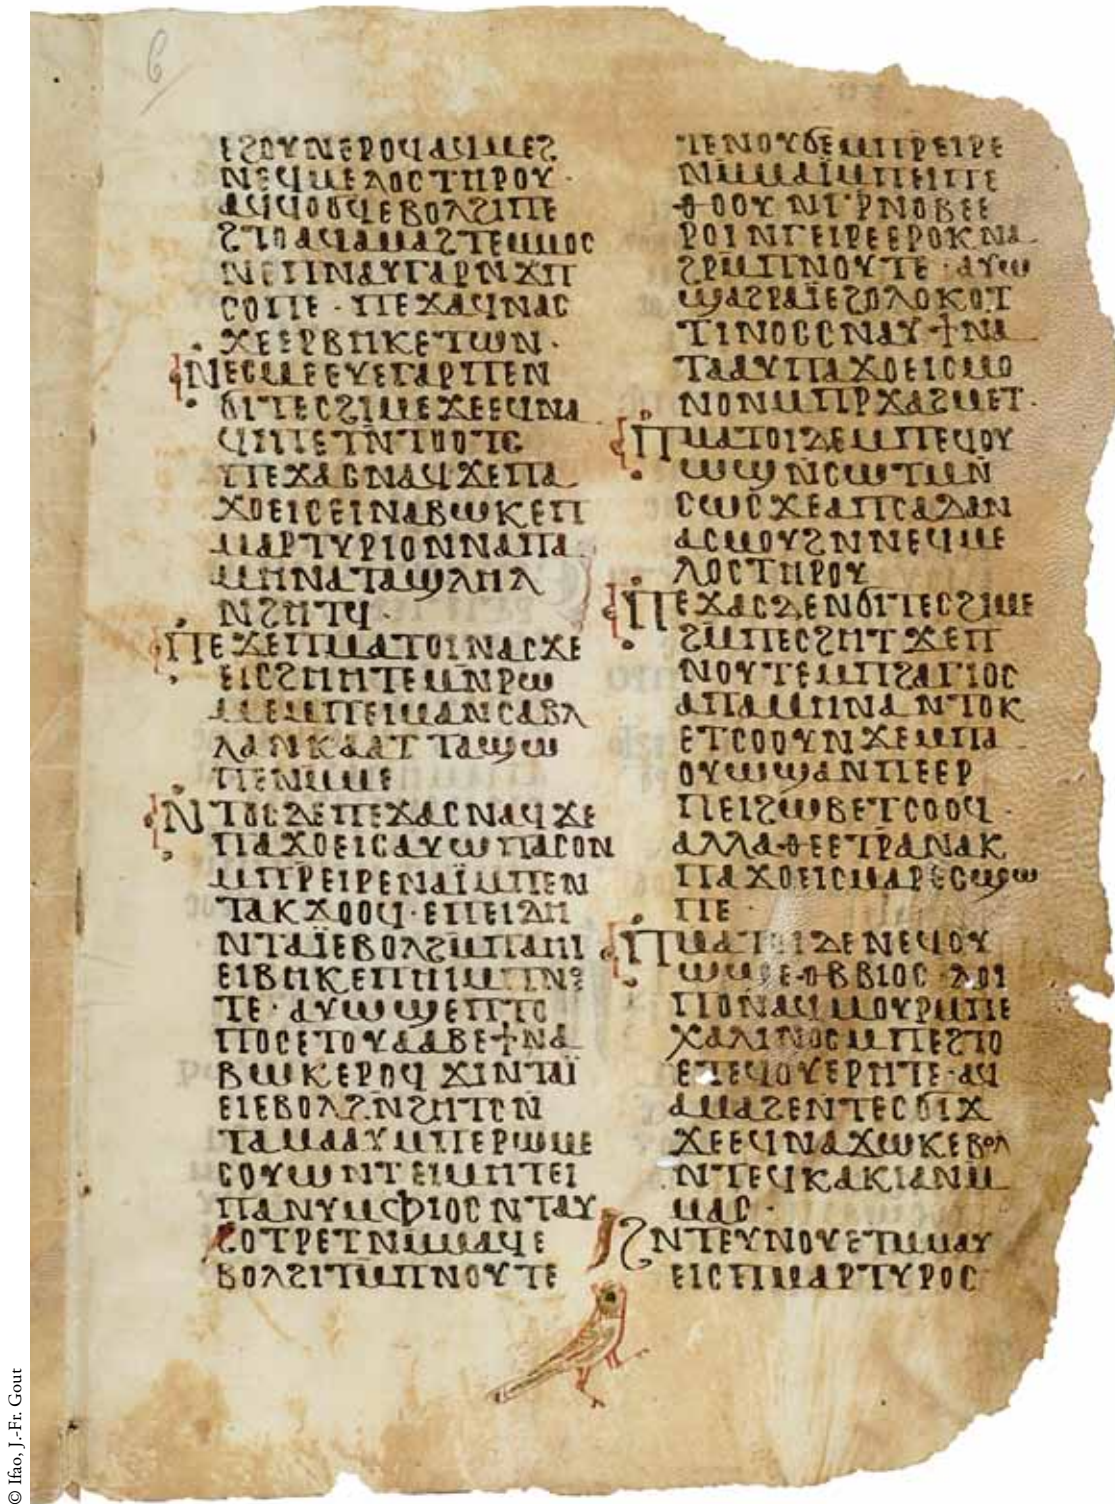 6
ⲉϩⲟⲩⲛⲉⲣⲟϥⲁϥⲙⲉϩ
ⲛⲉϥⲙⲉⲗⲟⲥⲧⲏⲣⲟⲩ·
ⲁϥϥⲟϭϥⲉⲃⲟⲗϩⲓⲡⲉ
ϩⲧⲟⲁϥⲁⲙⲁϩⲧⲉⲙⲙⲟⲥ
ⲛⲉⲡⲛⲁⲩⲅⲁⲣⲛϫⲡ
ⲥⲟⲡⲉ·ⲡⲉϫⲁϥⲛⲁⲥ
ϫⲉⲉⲣⲃⲏⲕⲉⲧⲱⲛ·
ⲛⲉⲥⲙⲉⲉⲩⲉⲅⲁⲣⲡⲉⲛ
ϭⲓⲧⲉⲥϩⲓⲙⲉϫⲉⲉϥⲛⲁ
ϥⲓⲡⲉⲧⲛ̄ⲧⲟⲟⲧⲥ
ⲡⲉϫⲁⲥⲛⲁϥ·ϫⲉⲡⲁ
ϫⲟⲉⲓⲥⲉⲓⲛⲁⲃⲱⲕⲉⲡ
ⲙⲁⲣⲧⲩⲣⲓⲟⲛⲛⲁⲡⲁ
ⲙⲏⲛⲁⲧⲁϣⲗⲏⲗ
ⲛϩⲏⲧϥ·
ⲡⲉϫⲉⲡⲙⲁⲧⲟⲓⲛⲁⲥϫⲉ
ⲉⲓⲥϩⲏⲏⲧⲉⲙⲛ̄ⲣⲱ
ⲙⲉⲙⲡⲉⲓⲙⲁⲛⲥⲁⲃⲗ
ⲗⲁⲛⲕⲁⲁⲧ ⲧⲁϣⲱ
ⲡⲉⲛⲙ̄ⲙⲉ
ⲛⲧⲟⲥⲇⲉⲡⲉϫⲁⲥⲛⲁϥϫⲉ
ⲡⲁϫⲟⲉⲓⲥⲁⲩⲱⲡⲁⲥⲟⲛ
ⲙⲡⲣ̄ⲉⲓⲣⲉⲛⲁⲓ̈ⲙⲡⲉⲛ
ⲧⲁⲕϫⲟⲟϥ·ⲉⲡⲉⲓⲇⲏ
ⲛⲧⲁⲓ̈ⲉⲃⲟⲗϩⲙ̄ⲡⲁⲏⲓ
ⲉⲓⲃⲏⲕⲉⲡⲏⲓⲙ̄ⲡⲛⲟⲩ
ⲧⲉ·ⲁⲩⲱϣⲉⲡⲧⲟ
ⲡⲟⲥⲉⲧⲟⲩⲁⲁⲃⲉϯⲛⲁ
ⲃⲱⲕⲉⲣⲟϥ ϫⲓⲛⲧⲁⲓ̈
ⲉⲓⲉⲃⲟⲗϩⲛ̄ϩⲏⲧⲥⲛ̄
ⲧⲁⲙⲁⲁⲩⲙⲡⲉⲣⲱⲙⲉ
ⲥⲟⲩⲱⲛⲧ ⲉⲓⲙⲏⲧⲉⲓ
ⲡⲁⲛⲩⲙⲫⲓⲟⲥ ⲛⲧⲁⲩ
ϩⲟⲧⲣⲉⲧⲛⲙ̄ⲙⲁϥⲉ
ⲃⲟⲗϩⲓⲧⲙ̄ⲡⲛⲟⲩⲧⲉ
ⲧⲉⲛⲟⲩϭⲉⲙⲡⲣ̄ⲉⲓⲣⲉ
ⲛⲙ̄ⲙⲁⲓ̈ⲙⲡⲉⲓⲡⲉ
ⲑⲟⲟⲩ ⲛⲅⲣ̄ⲛⲟⲃⲉⲉ
ⲣⲟⲓ ⲛⲅⲉⲓⲣⲉⲉⲣⲟⲕ ⲛⲁ
ϩⲣⲙ̄ⲡⲛⲟⲩⲧⲉ·ⲁⲩⲱ
ϣⲁϩⲣⲁⲓ̈ⲉϩⲟⲗⲟⲕⲟⲧ
ⲧⲓⲛⲟⲥⲥⲛⲁⲩ ϯⲛⲁ
ⲧⲁⲁⲩ ⲡⲁϫⲟⲉⲓⲥⲙⲟ
ⲛⲟⲛⲙⲡⲣ̄ϫⲁϩⲙⲉⲧ·
ⲡⲙⲁⲧⲟⲓⲇⲉⲙⲡⲉϥⲟⲩ
ⲱϣⲛ̄ⲥⲱⲧⲙ̄ⲛ̄
ⲥⲱⲥ ϫⲉⲁⲡⲥⲁⲇⲁⲛ
ⲁⲥⲙⲟⲩϩⲛⲛⲉϥⲙⲉ
ⲗⲟⲥⲧⲏⲣⲟⲩ
ⲡⲉϫⲁⲥⲇⲉⲛϭⲓⲧⲉⲥϩⲓⲙⲉ
ϩⲙ̄ⲡⲉⲥϩⲏⲧ ϫⲉⲡ
ⲛⲟⲩⲧⲉⲙⲡϩⲁⲅⲓⲟⲥ
ⲁⲡⲁⲙⲏⲛⲁ ⲛⲧⲟⲕ
ⲉⲧⲥⲟⲟⲩⲛ ϫⲉⲙⲡⲁ
ⲟⲩⲱϣⲁⲛⲡⲉⲉⲣ
ⲡⲉⲓϩⲱⲃⲉⲧⲥⲟⲟϥ·
ⲁⲗⲗⲁⲑⲉⲉⲧⲣⲁⲛⲁⲕ
ⲡⲁϫⲟⲉⲓⲥⲙⲁⲣⲉⲥϣⲱ
ⲡⲉ·
ⲡⲙⲁⲧⲟⲓⲇⲉⲛⲉϥⲟⲩ
ⲱϣⲉⲑⲃⲃⲓⲟⲥ·ⲗⲟⲓ
ⲡⲟⲛⲁϥⲙⲟⲩⲣⲙ̄ⲡⲉ
ⲭⲁⲗⲓⲛⲟⲥⲙⲡⲉϩⲧⲟ
ⲉⲧⲉϥⲟⲩⲉⲣⲏⲧⲉ·ⲁϥ
ⲁⲙⲁϩⲉⲛⲧⲉⲥϭⲓϫ
ϫⲉⲉϥⲛⲁϫⲱⲕⲉⲃⲟⲗ
ⲛⲧⲉϥⲕⲁⲕⲓⲁⲛⲙ̄
ⲙⲁⲥ·
ϩⲛⲧⲉⲩⲛⲟⲩⲉⲧⲙ̄ⲙⲁⲩ
ⲉⲓⲥⲡⲙⲁⲣⲧⲩⲣⲟⲥ
© Ifao, J.-Fr. Gout